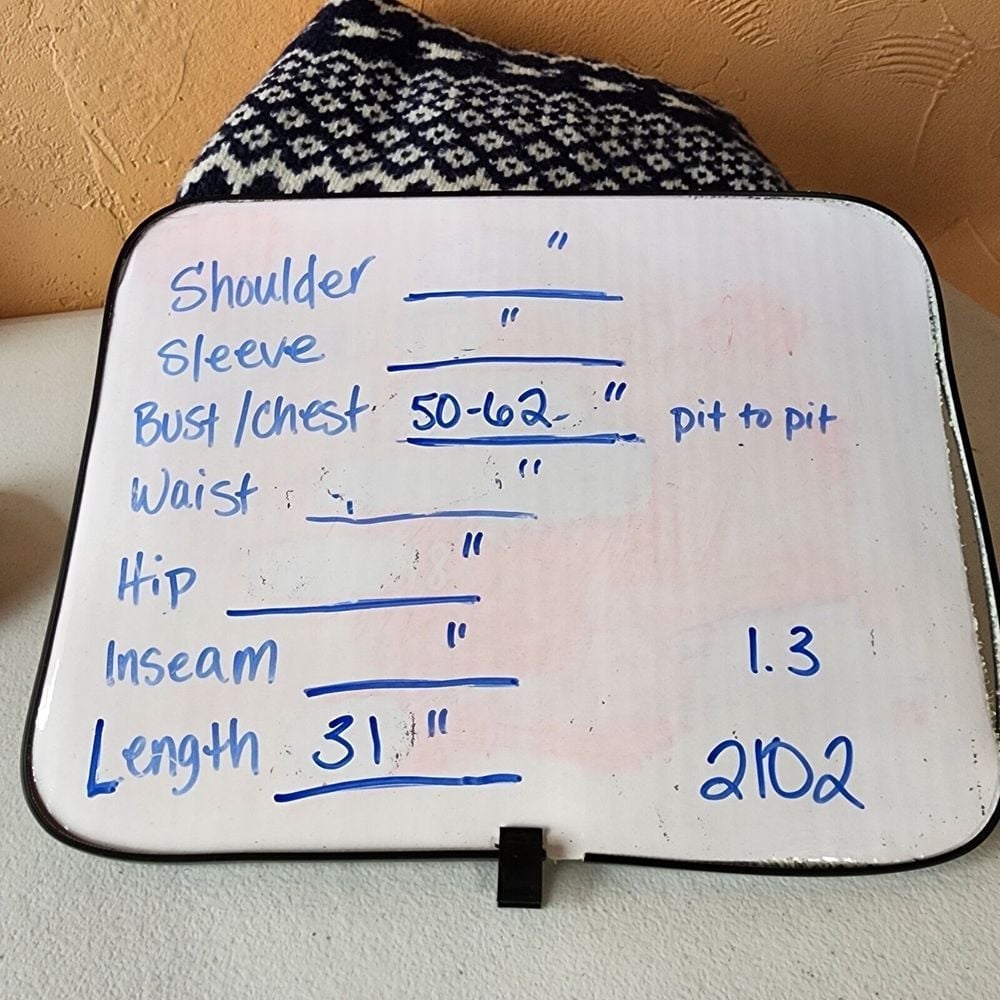 Shoulder ___ "
Sleeve ___ "
Bust/Chest 50-62 " pit to pit
Waist ___ "
Hip ___ "
Inseam ___ "
1.3
Length 31 "
2102